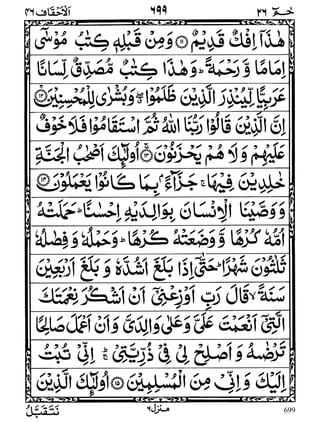 الاحقاف ٤٦ ٦٩٩ حٰمٓ ٢٦
هٰذَاۤ اِفْكٌ قَدِيْمٌ ﴿۱۱﴾ وَمِنْ قَبْلِهٖ كِتٰبُ مُوْسٰۤى
اِمَامًا وَّ رَحْمَةً ؕ وَهٰذَا كِتٰبٌ مُّصَدِّقٌ لِّسَانًا
عَرَبِيًّا لِّيُنْذِرَ الَّذِيْنَ ظَلَمُوْا ۖۗ وَبُشْرٰى لِلْمُحْسِنِيْنَ ﴿۱۲﴾
اِنَّ الَّذِيْنَ قَالُوْا رَبُّنَا اللّٰهُ ثُمَّ اسْتَقَامُوْا فَلَا خَوْفٌ
عَلَيْهِمْ وَلَا هُمْ يَحْزَنُوْنَ ﴿۱۳﴾ اُولٰٓئِكَ اَصْحٰبُ الْجَنَّةِ
خٰلِدِيْنَ فِيْهَا ۚ جَزَآءًۢ بِمَا كَانُوْا يَعْمَلُوْنَ ﴿۱۴﴾
وَ وَصَّيْنَا الْاِنْسَانَ بِوَالِدَيْهِ اِحْسٰنًا ؕ حَمَلَتْهُ
اُمُّهٗ كُرْهًا وَّ وَضَعَتْهُ كُرْهًا ؕ وَحَمْلُهٗ وَ فِصٰلُهٗ
ثَلٰثُوْنَ شَهْرًا ؕ حَتّٰۤى اِذَا بَلَغَ اَشُدَّهٗ وَ بَلَغَ اَرْبَعِيْنَ
سَنَةً ۙ قَالَ رَبِّ اَوْزِعْنِيْۤ اَنْ اَشْكُرَ نِعْمَتَكَ
الَّتِيْۤ اَنْعَمْتَ عَلَيَّ وَعَلٰى وَالِدَيَّ وَاَنْ اَعْمَلَ صَالِحًا
تَرْضٰىهُ وَ اَصْلِحْ لِيْ فِيْ ذُرِّيَّتِيْ ؕۚ اِنِّيْ تُبْتُ
اِلَيْكَ وَ اِنِّيْ مِنَ الْمُسْلِمِيْنَ ﴿۱۵﴾ اُولٰٓئِكَ الَّذِيْنَ
نَتَقَبَّلُ منزل ٦ 699